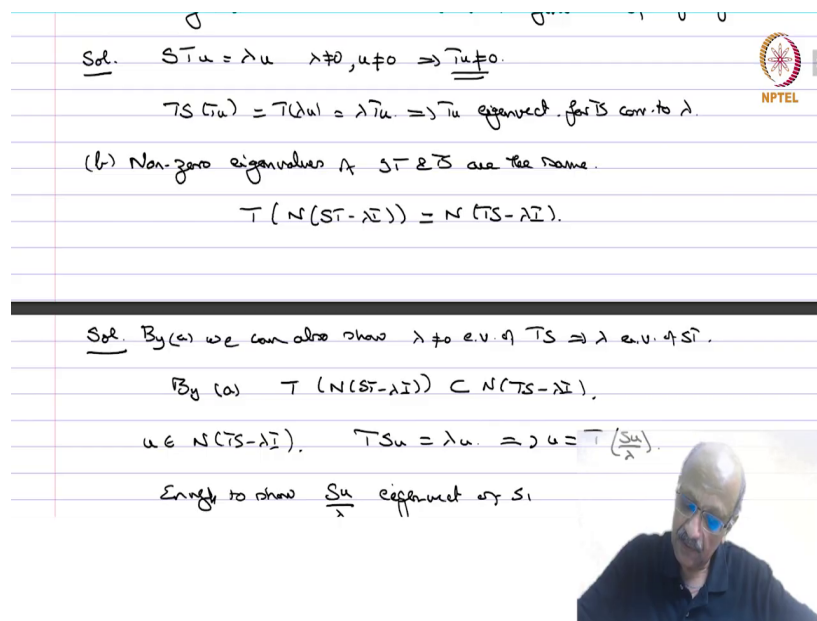 Sol. STu = λu λ≠0, u≠0 ⇒ Tu≠0.
NPTEL
TS(Tu) = T(λu) = λTu. ⇒ Tu eigenvect. for TS corr. to λ.
(b) Non-zero eigenvalues of ST & TS are the same.
T(N(ST-λI)) = N(TS-λI).
Sol. By (a) we can also show λ≠0 e.v. of TS ⇒ λ e.v. of ST.
By (a) T(N(ST-λI)) ⊂ N(TS-λI).
u ∈ N(TS-λI). TSu = λu. ⇒ u = T(Su/λ).
Enough to show Su/λ eigenvect of S